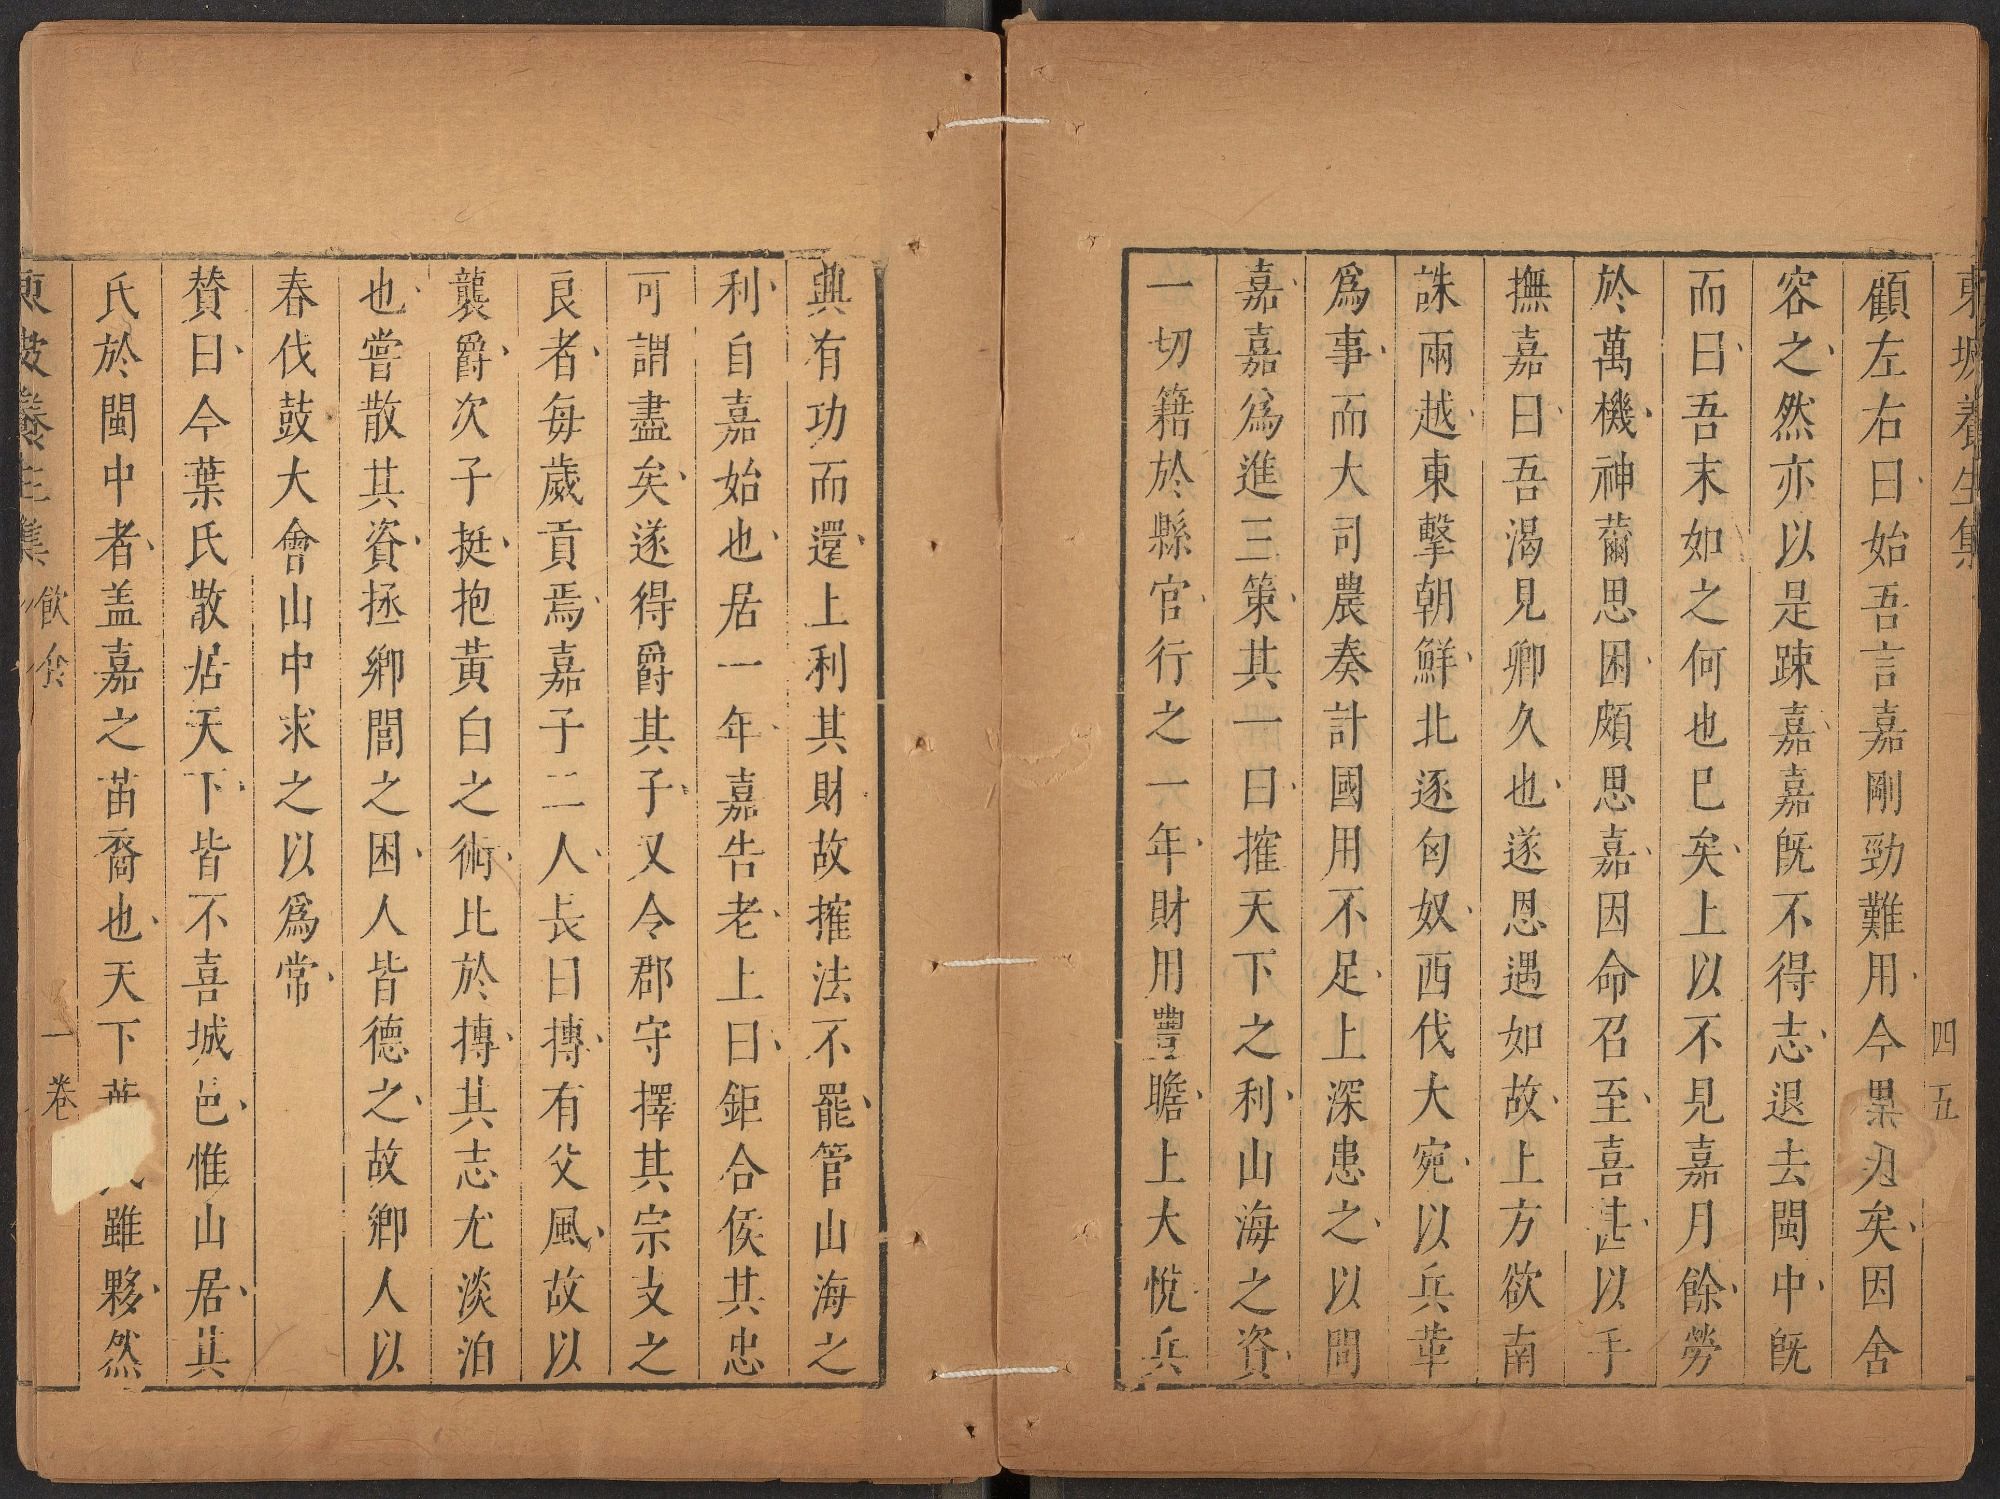 東坡養生集
四五
顧左右曰始吾言嘉剛勁難用今果矣因舍
容之然亦以是踈嘉嘉旣不得志退去閩中旣
而曰吾末如之何也巳矣上以不見嘉月餘勞
於萬機神薾思困頗思嘉因命召至喜甚以手
撫嘉曰吾渴見卿久也遂恩遇如故上方欲南
誅兩越東擊朝鮮北逐匈奴西伐大宛以兵革
爲事而大司農奏計國用不足上深患之以問
嘉嘉爲進三策其一曰搉天下之利山海之資
一切籍於縣官行之一年財用豐贍上大悅兵
興有功而還上利其財故搉法不罷管山海之
利自嘉始也居一年嘉告老上曰鉅合侯其忠
可謂盡矣遂得爵其子又令郡守擇其宗支之
良者每歲貢焉嘉子二人長曰摶有父風故以
襲爵次子挺抱黃白之術比於摶其志尤淡泊
也嘗散其資拯鄉閭之困人皆德之故鄉人以
春伐鼓大會山中求之以爲常
贊曰今葉氏散居天下皆不喜城邑惟山居其
氏於閩中者盖嘉之苗裔也天下葉雖夥然
東坡養生集
飲食
一卷